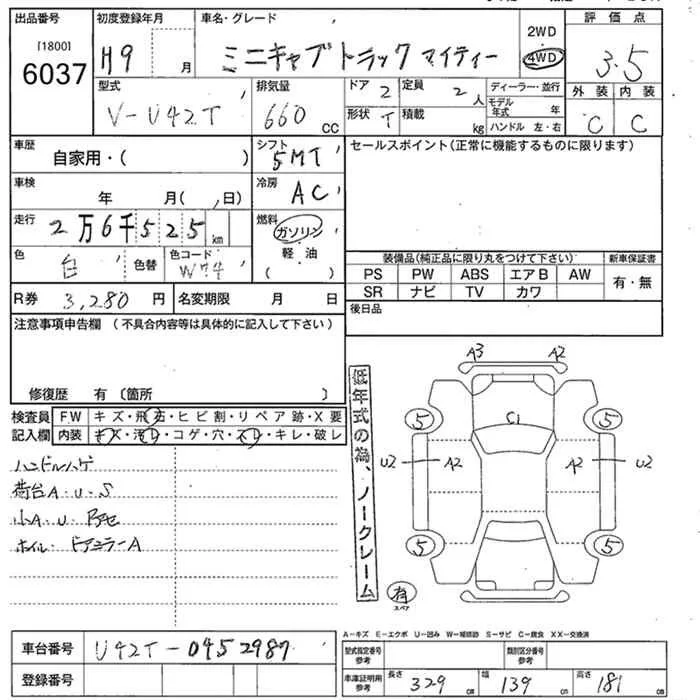 出品番号 初度登録年月 車名・グレード 2WD 評価点
[1800] 6037 H9 月 ミニキャブトラック マイティー 4WD 3.5
型式 排気量 ドア 2 定員 2 人 ディーラー・並行 外装 内装
V-U42T 660 CC 形状 T 積載 kg モデル年式 年 C C
ハンドル 左・右
車歴 自家用・( ) シフト 5MT セールスポイント(正常に機能するものに限ります)
車検 年 月( 、日) 冷房 AC
走行 2万6千525km 燃料 ガソリン
軽油
( )
色 白 色替 色コード W74
装備品(純正品に限り丸をつけて下さい) 新車保証書
PS PW ABS エアB AW 有・無
SR ナビ TV カワ
R券 3,280 円 名変期限 月 日 後日品
注意事項申告欄 (不具合内容等は具体的に記入して下さい)
修復歴 有 〔箇所 〕
検査員 FW キズ・飛石・ヒビ割・リペア跡・X要
記入欄 内装 キズ・汚レ・コゲ・穴・スレ・キレ・破レ
ハンドルハゲ
荷台A・U・S
小A・U
ホイル・ドアミラーA
低年式の為、ノークレーム
A3 A2
5 C1 5
U2 A2 A2 U2
5 5
有
スペア
A-キズ E-エクボ U-凹み W-補修跡 S-サビ C-腐食 XX-交換済
車台番号 U42T-0452987 型式指定番号 参考 類別区分番号 参考
登録番号 車庫証明用 参考 長さ 329 cm 幅 139 cm 高さ 181 cm